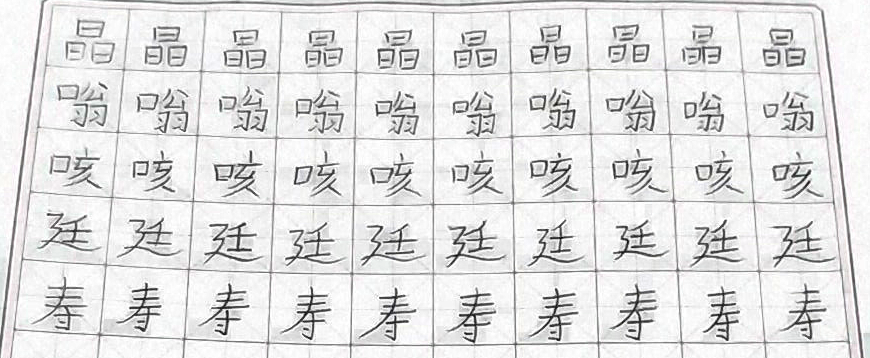 晶晶晶晶晶晶晶晶晶晶
嗡嗡嗡嗡嗡嗡嗡嗡嗡嗡
咳咳咳咳咳咳咳咳咳咳
廷廷廷廷廷廷廷廷廷廷
寿寿寿寿寿寿寿寿寿寿